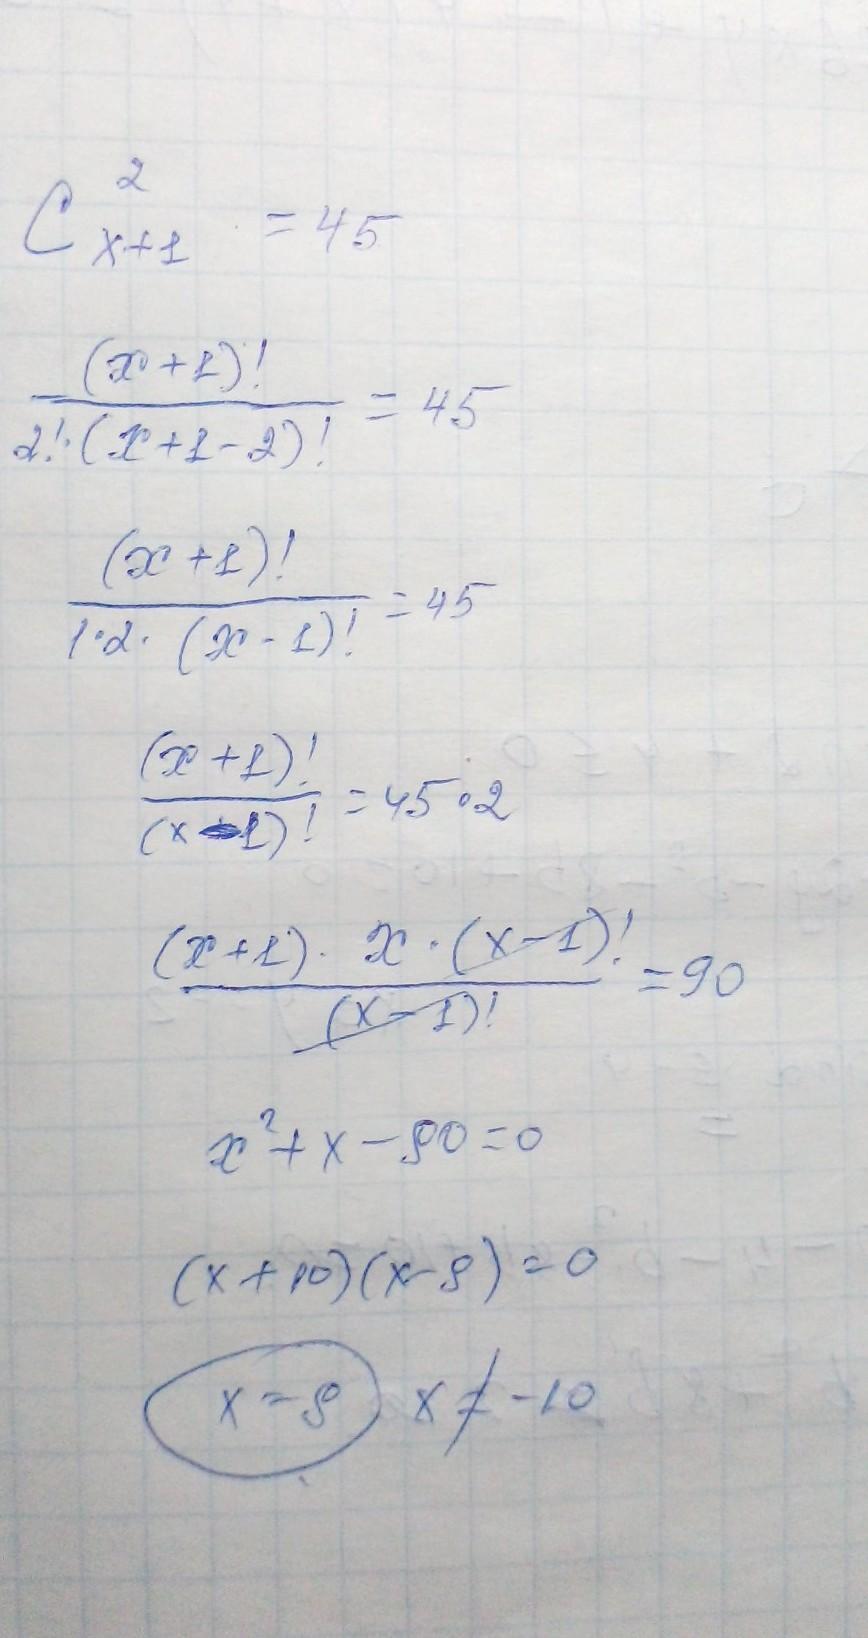 C²ₓ₊₁ = 45
(x+1)! / 2!·(x+1-2)! = 45
(x+1)! / 1·2·(x-1)! = 45
(x+1)! / (x-1)! = 45·2
(x+1)·x·(x-1)! / (x-1)! = 90
x²+x-90=0
(x+10)(x-9)=0
x=9 x≠-10